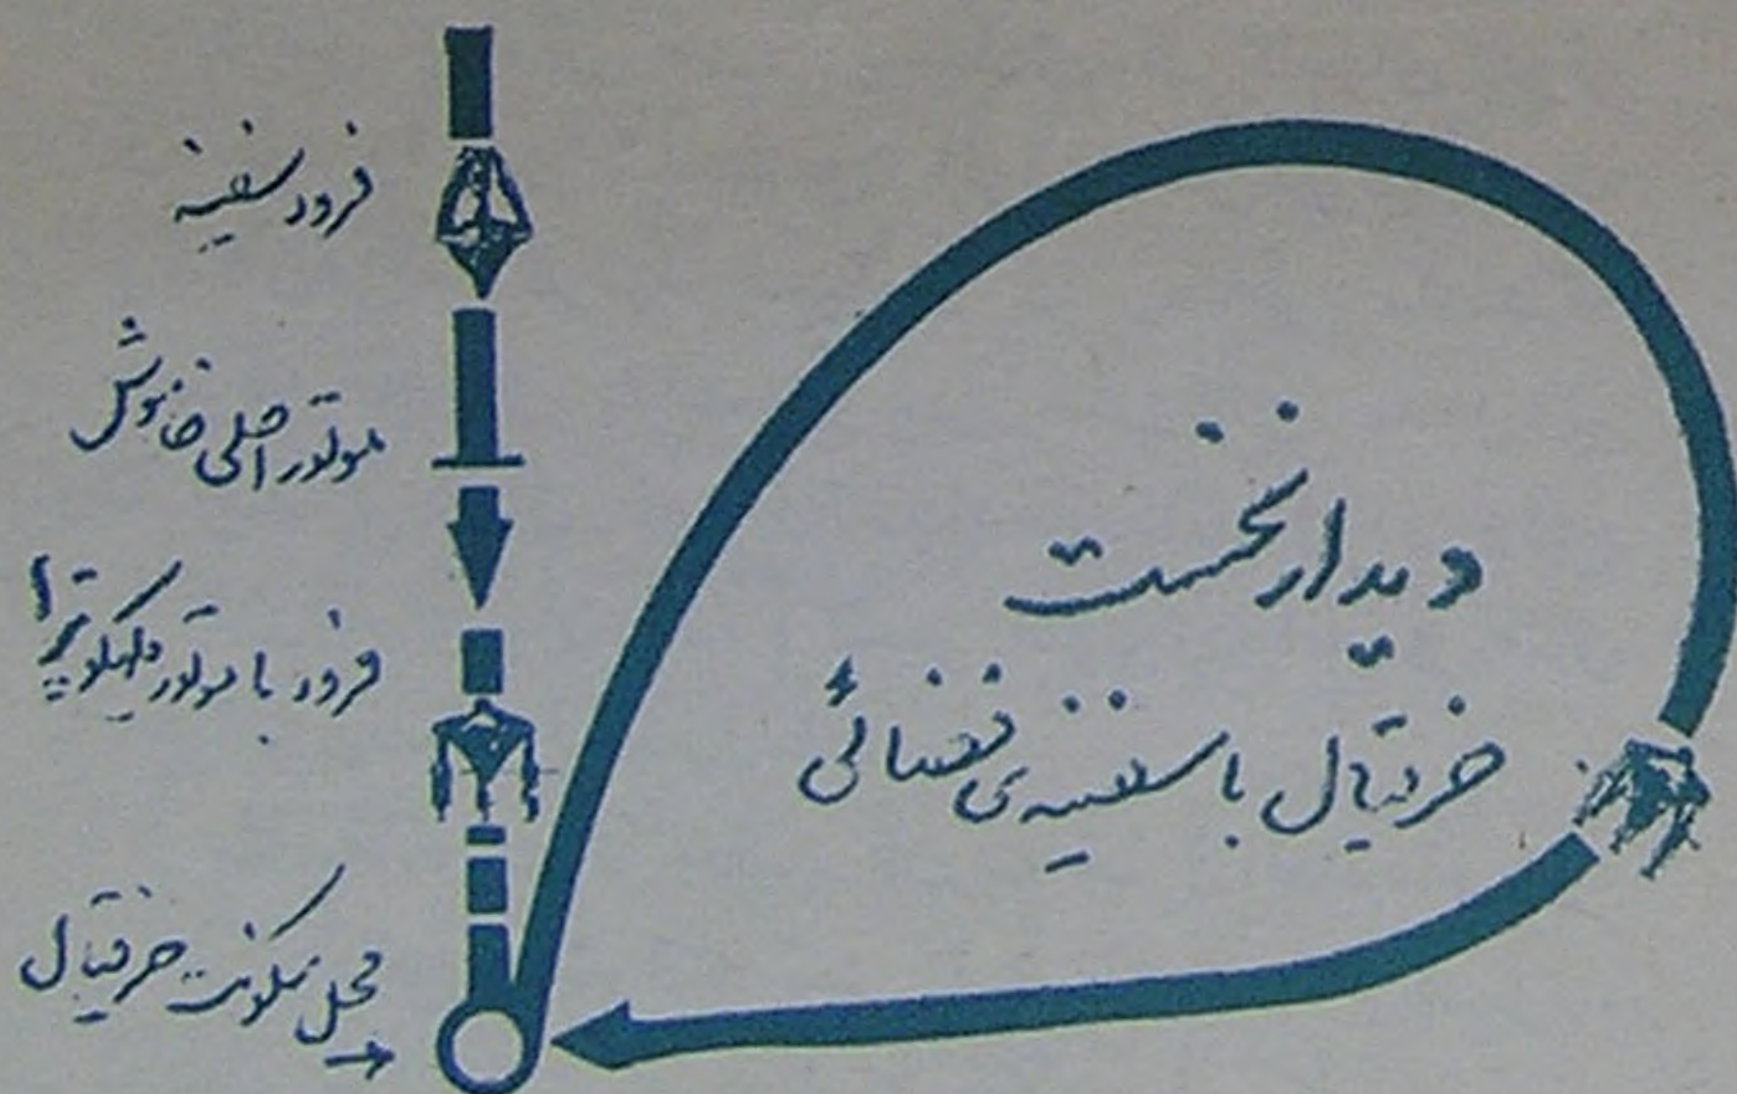 فرود سفینه
موتور اصلی خاموش
فرود با موتور هلیکوپترا
محل سکونت حزقیال
دیدار نخست
حزقیال با سفینه‌ی فضائی